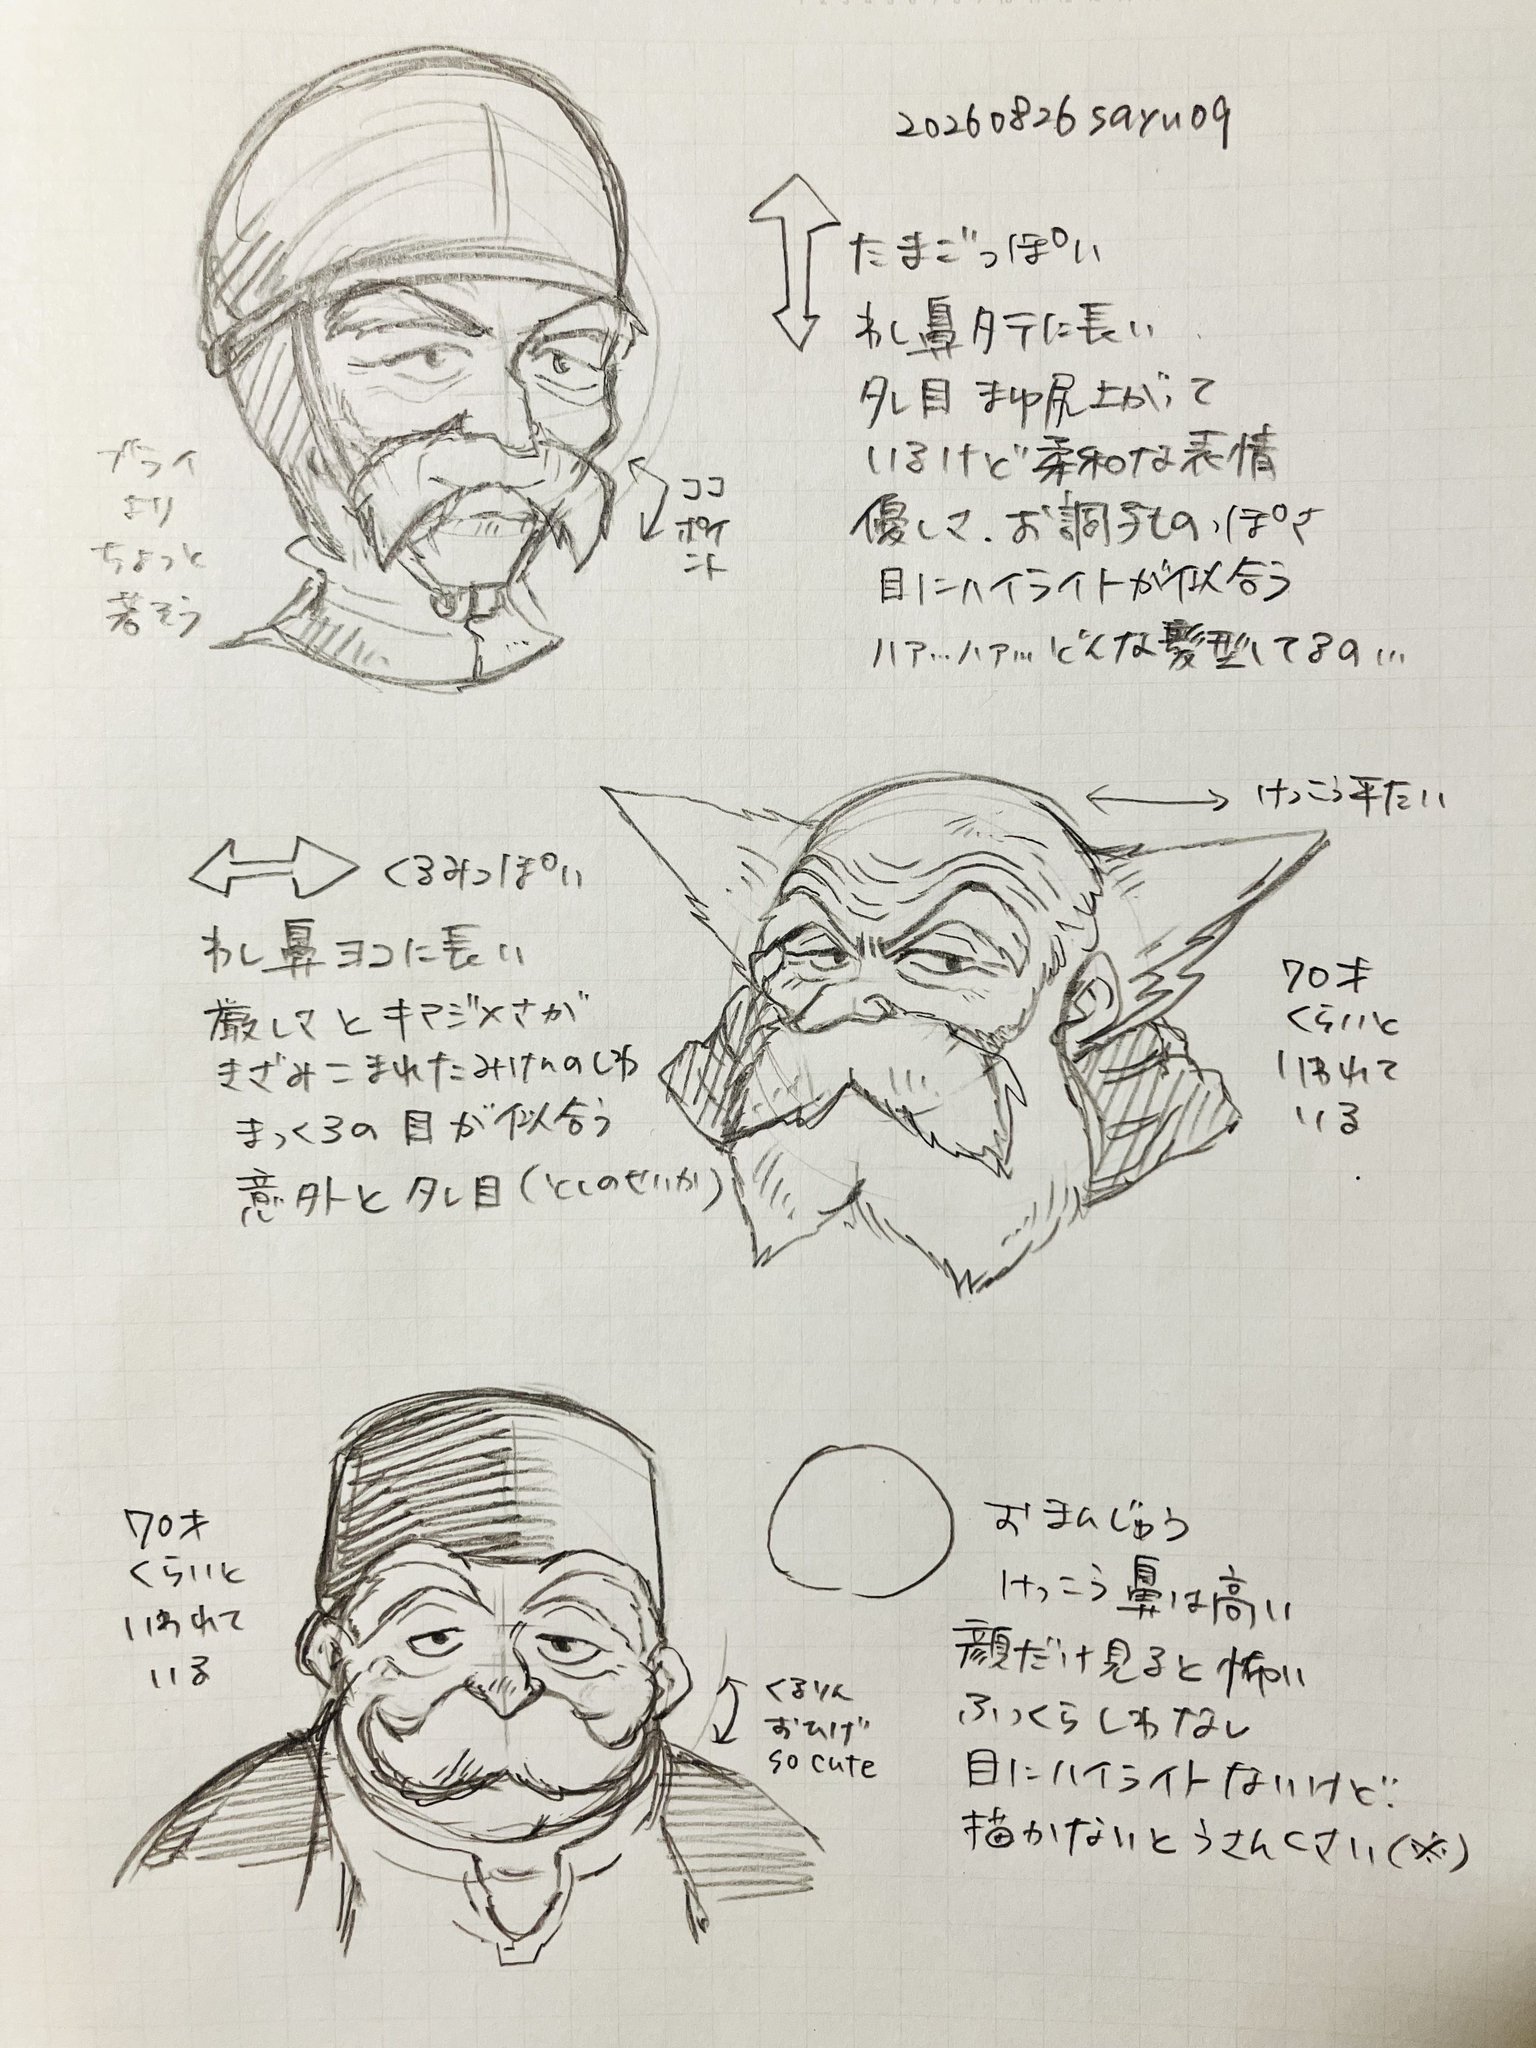 20260826 sayu09
たまごっぽい
わし鼻タテに長い
タレ目 まゆ尻上がって
いるけど柔和な表情
優しさ、お調子ものっぽさ
目にハイライトが似合う
ハァ…ハァ…どんな髪型してるの…
ブライ
より
ちょっと
若そう
ココ
ポイ
ント
けっこう平たい
くるみっぽい
わし鼻ヨコに長い
厳しさとキマジメさが
きざみこまれたみけんのしわ
まっくろの目が似合う
意外とタレ目(としのせいか)
70才
くらいと
いわれて
いる
70才
くらいと
いわれて
いる
くるりん
おひげ
so cute
おまんじゅう
けっこう鼻は高い
顔だけ見ると怖い
ふっくらしわなし
目にハイライトないけど
描かないとうさんくさい(※)